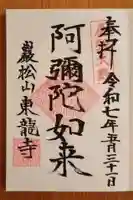 奉拝 令和七年五月三十一日
阿彌陀如来
巖松山東龍寺